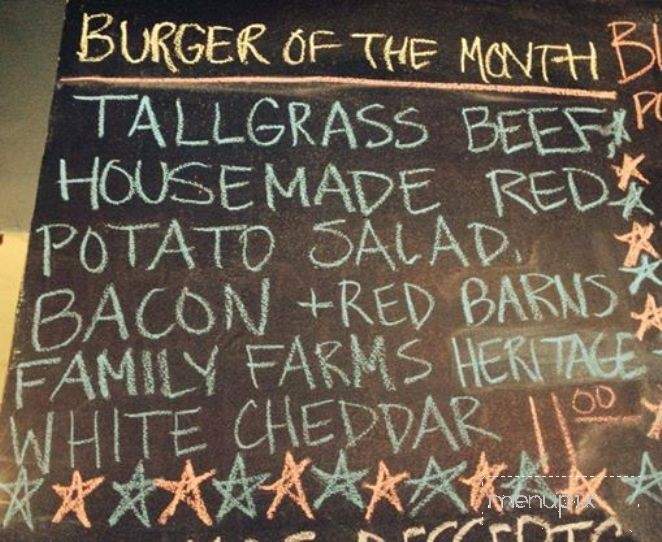 BURGER OF THE MONTH
TALLGRASS BEEF,
HOUSEMADE RED
POTATO SALAD,
BACON + RED BARNS
FAMILY FARMS HERITAGE
WHITE CHEDDAR 11.00
menupix
DESSERTS